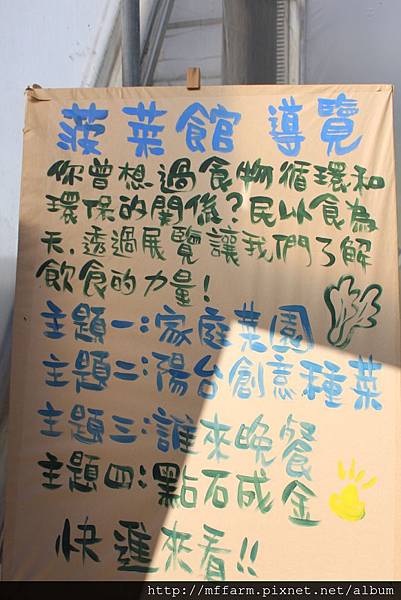 菠菜館 導覽
你曾想過食物循環和
環保的關係?民以食為
天.透過展覽讓我們了解
飲食的力量!
主題一:家庭菜園
主題二:陽台創意種菜
主題三:誰來晚餐
主題四:點石成金
快進來看!!
http://mffarm.pixnet.net/album